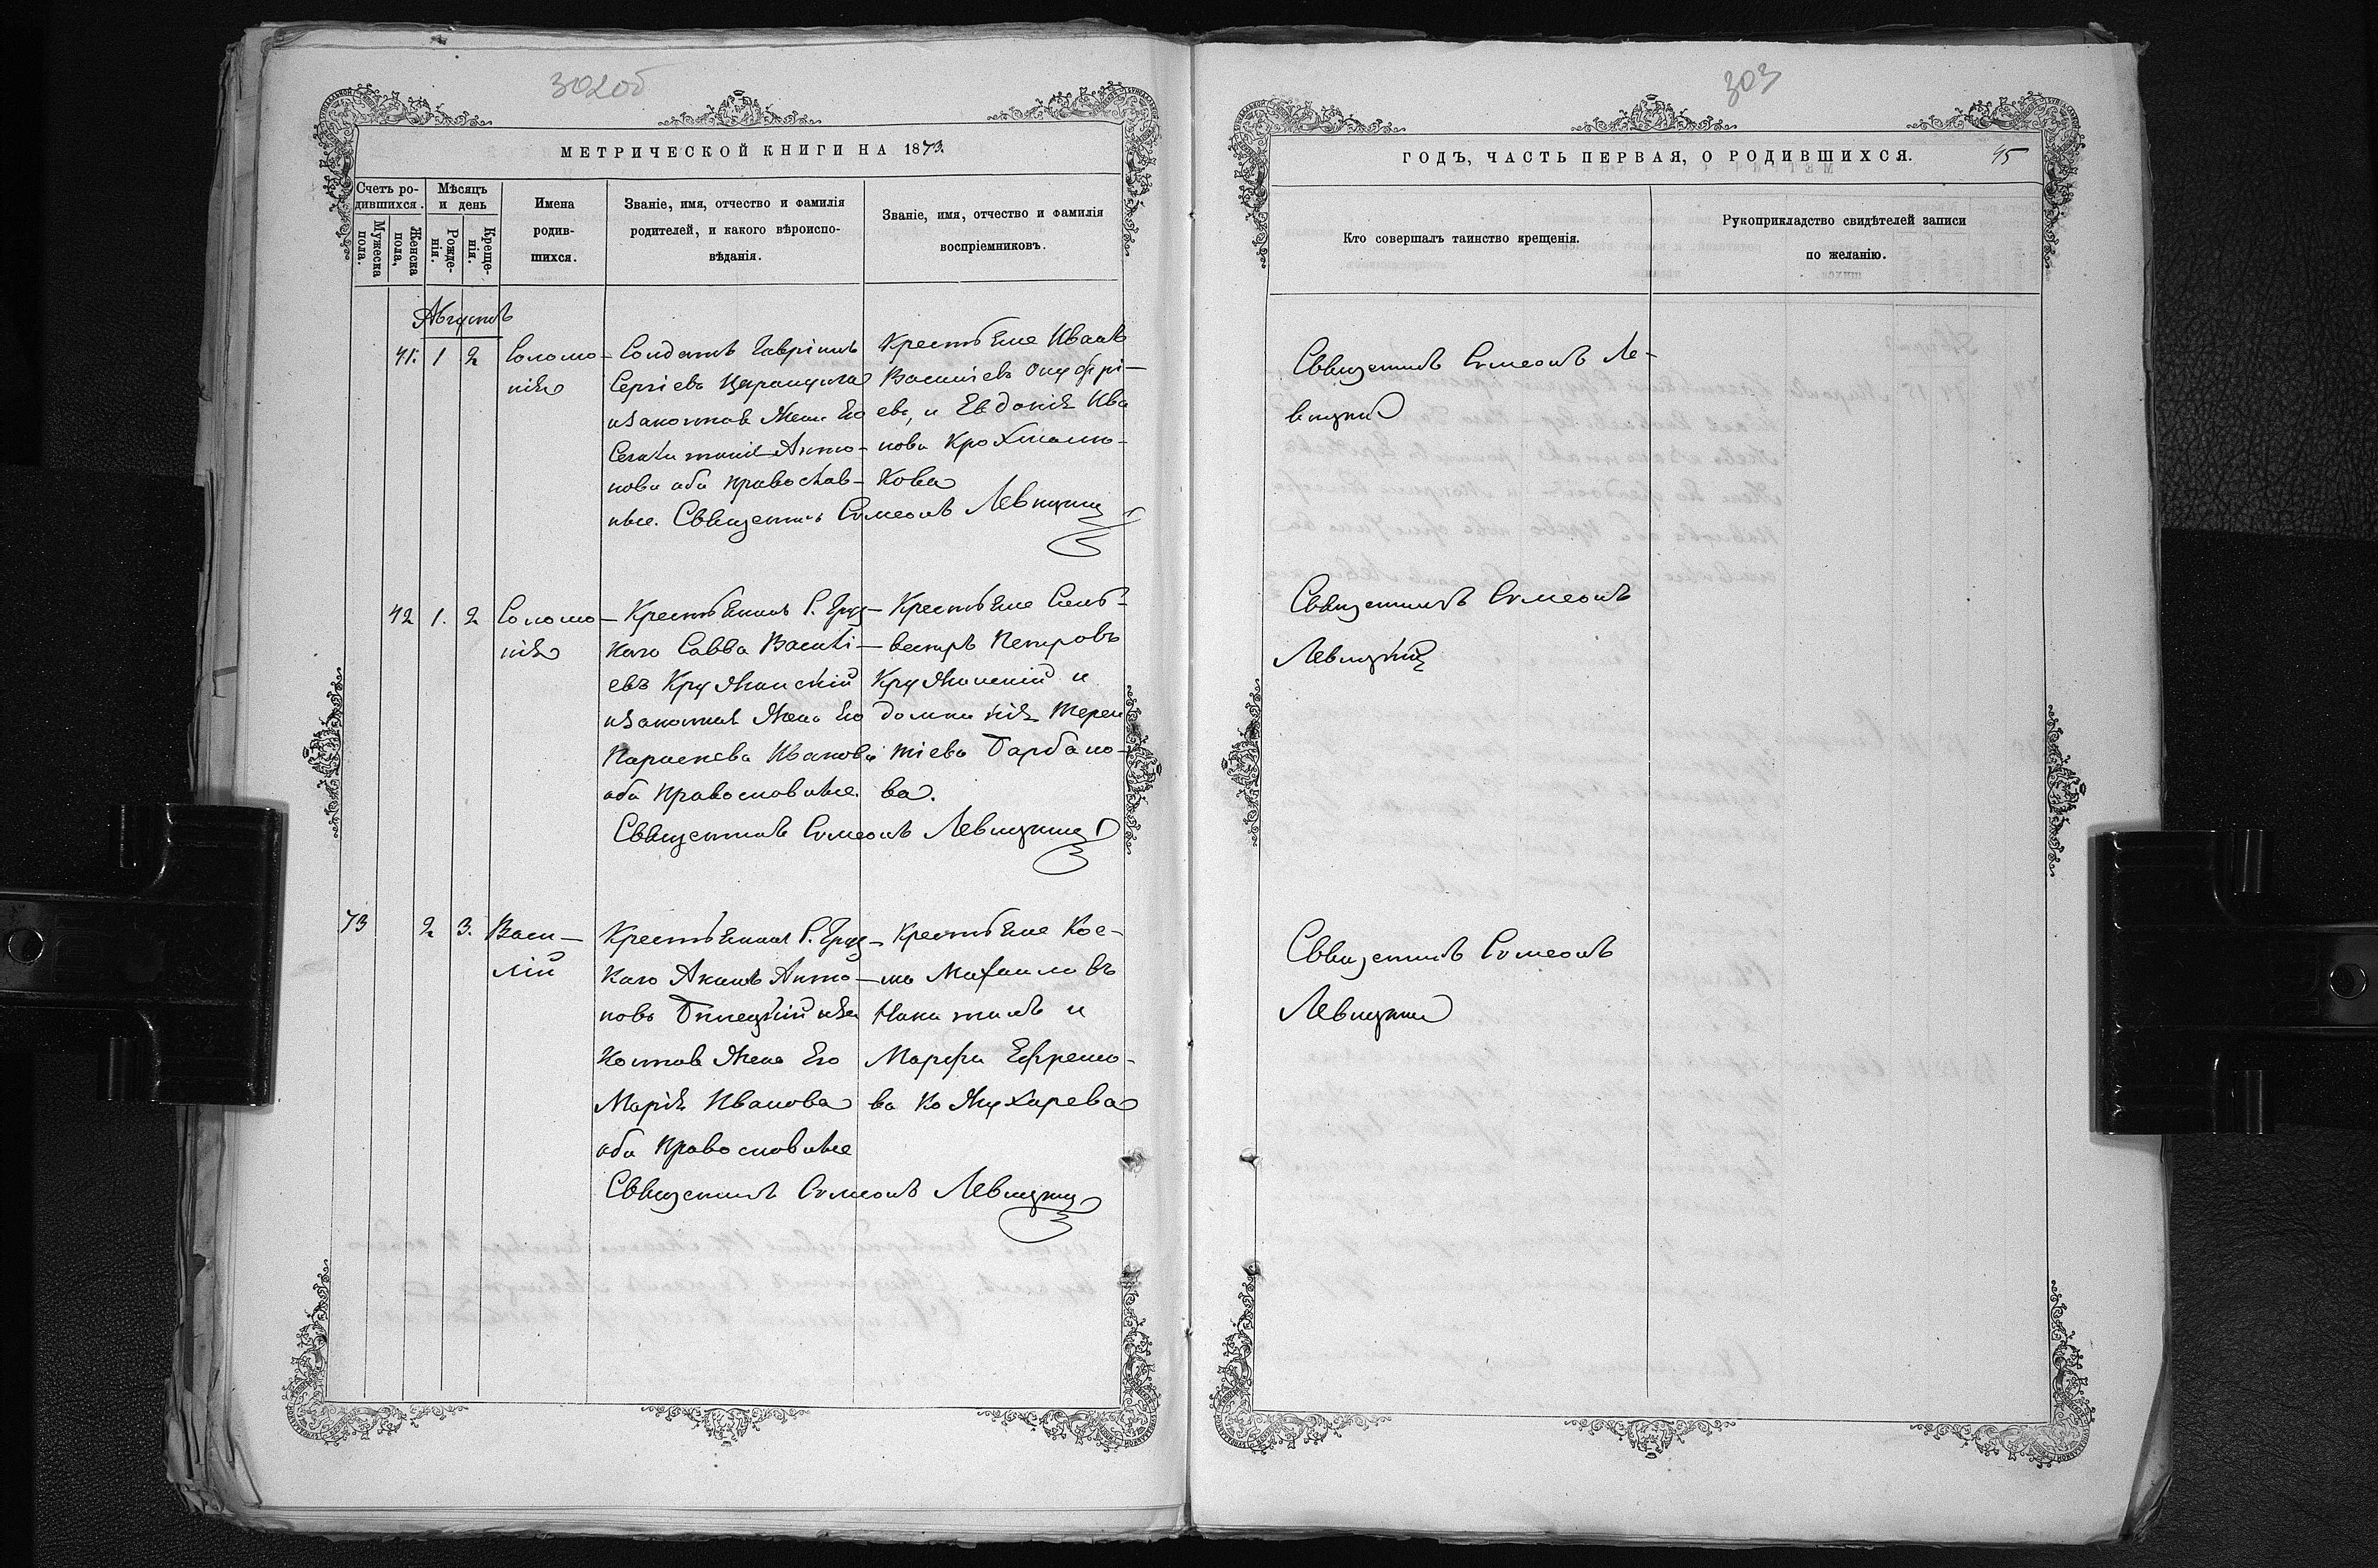 302об
МЕТРИЧЕСКОЙ КНИГИ НА 1873.
Счетъ ро-
дившихся.
Мѣсяцъ
и день
Мужеска
пола.
Женска
пола.
Рожде-
нія.
Креще-
нія.
Имена
родив-
шихся.
Званіе, имя, отчество и фамилія
родителей, и какого вѣроиспо-
вѣданія.
Званіе, имя, отчество и фамилія
воспріемниковъ.
Августъ
41. 1 2
Соломо-
нія
Солдатъ Гавріилъ
Сергіевъ
и законная жена Его
Анто-
нова оба православ-
ные. Священникъ Сумеонъ Левицкій
Крестьяне Иванъ
Васильевъ Онуфрі-
евъ, и Евдокія Ива
нова Крохмалю-
кова
42 1. 2
Соломо-
нія
Крестьянинъ С. Груш-
каго Савва Василі-
евъ Кружанскій
и законная жена Его
Параскева Иванова
оба православные.
Священникъ Сумеонъ Левицкій
Крестьяне Силь-
вестръ Петровъ
Кружанскій и
Домникія Терен
тіева Барбано-
ва.
73 2 3.
Васи-
лій
Крестьянинъ С. Груш-
каго Акимъ Анто-
новъ Билецкій и за
конная жена Его
Марія Иванова
оба православные
Священникъ Сумеонъ Левицкій
Крестьяне Кос-
ма Михаиловъ
и
Марфа Ефремо-
ва Кожухарева
303
ГОДЪ, ЧАСТЬ ПЕРВАЯ, О РОДИВШИХСЯ.
95
Кто совершалъ таинство крещенія.
Рукоприкладство свидѣтелей записи
по желанію.
Священникъ Сумеонъ Ле-
вицкій
Священникъ Сумеонъ
Левицкій
Священникъ Сумеонъ
Левицкій